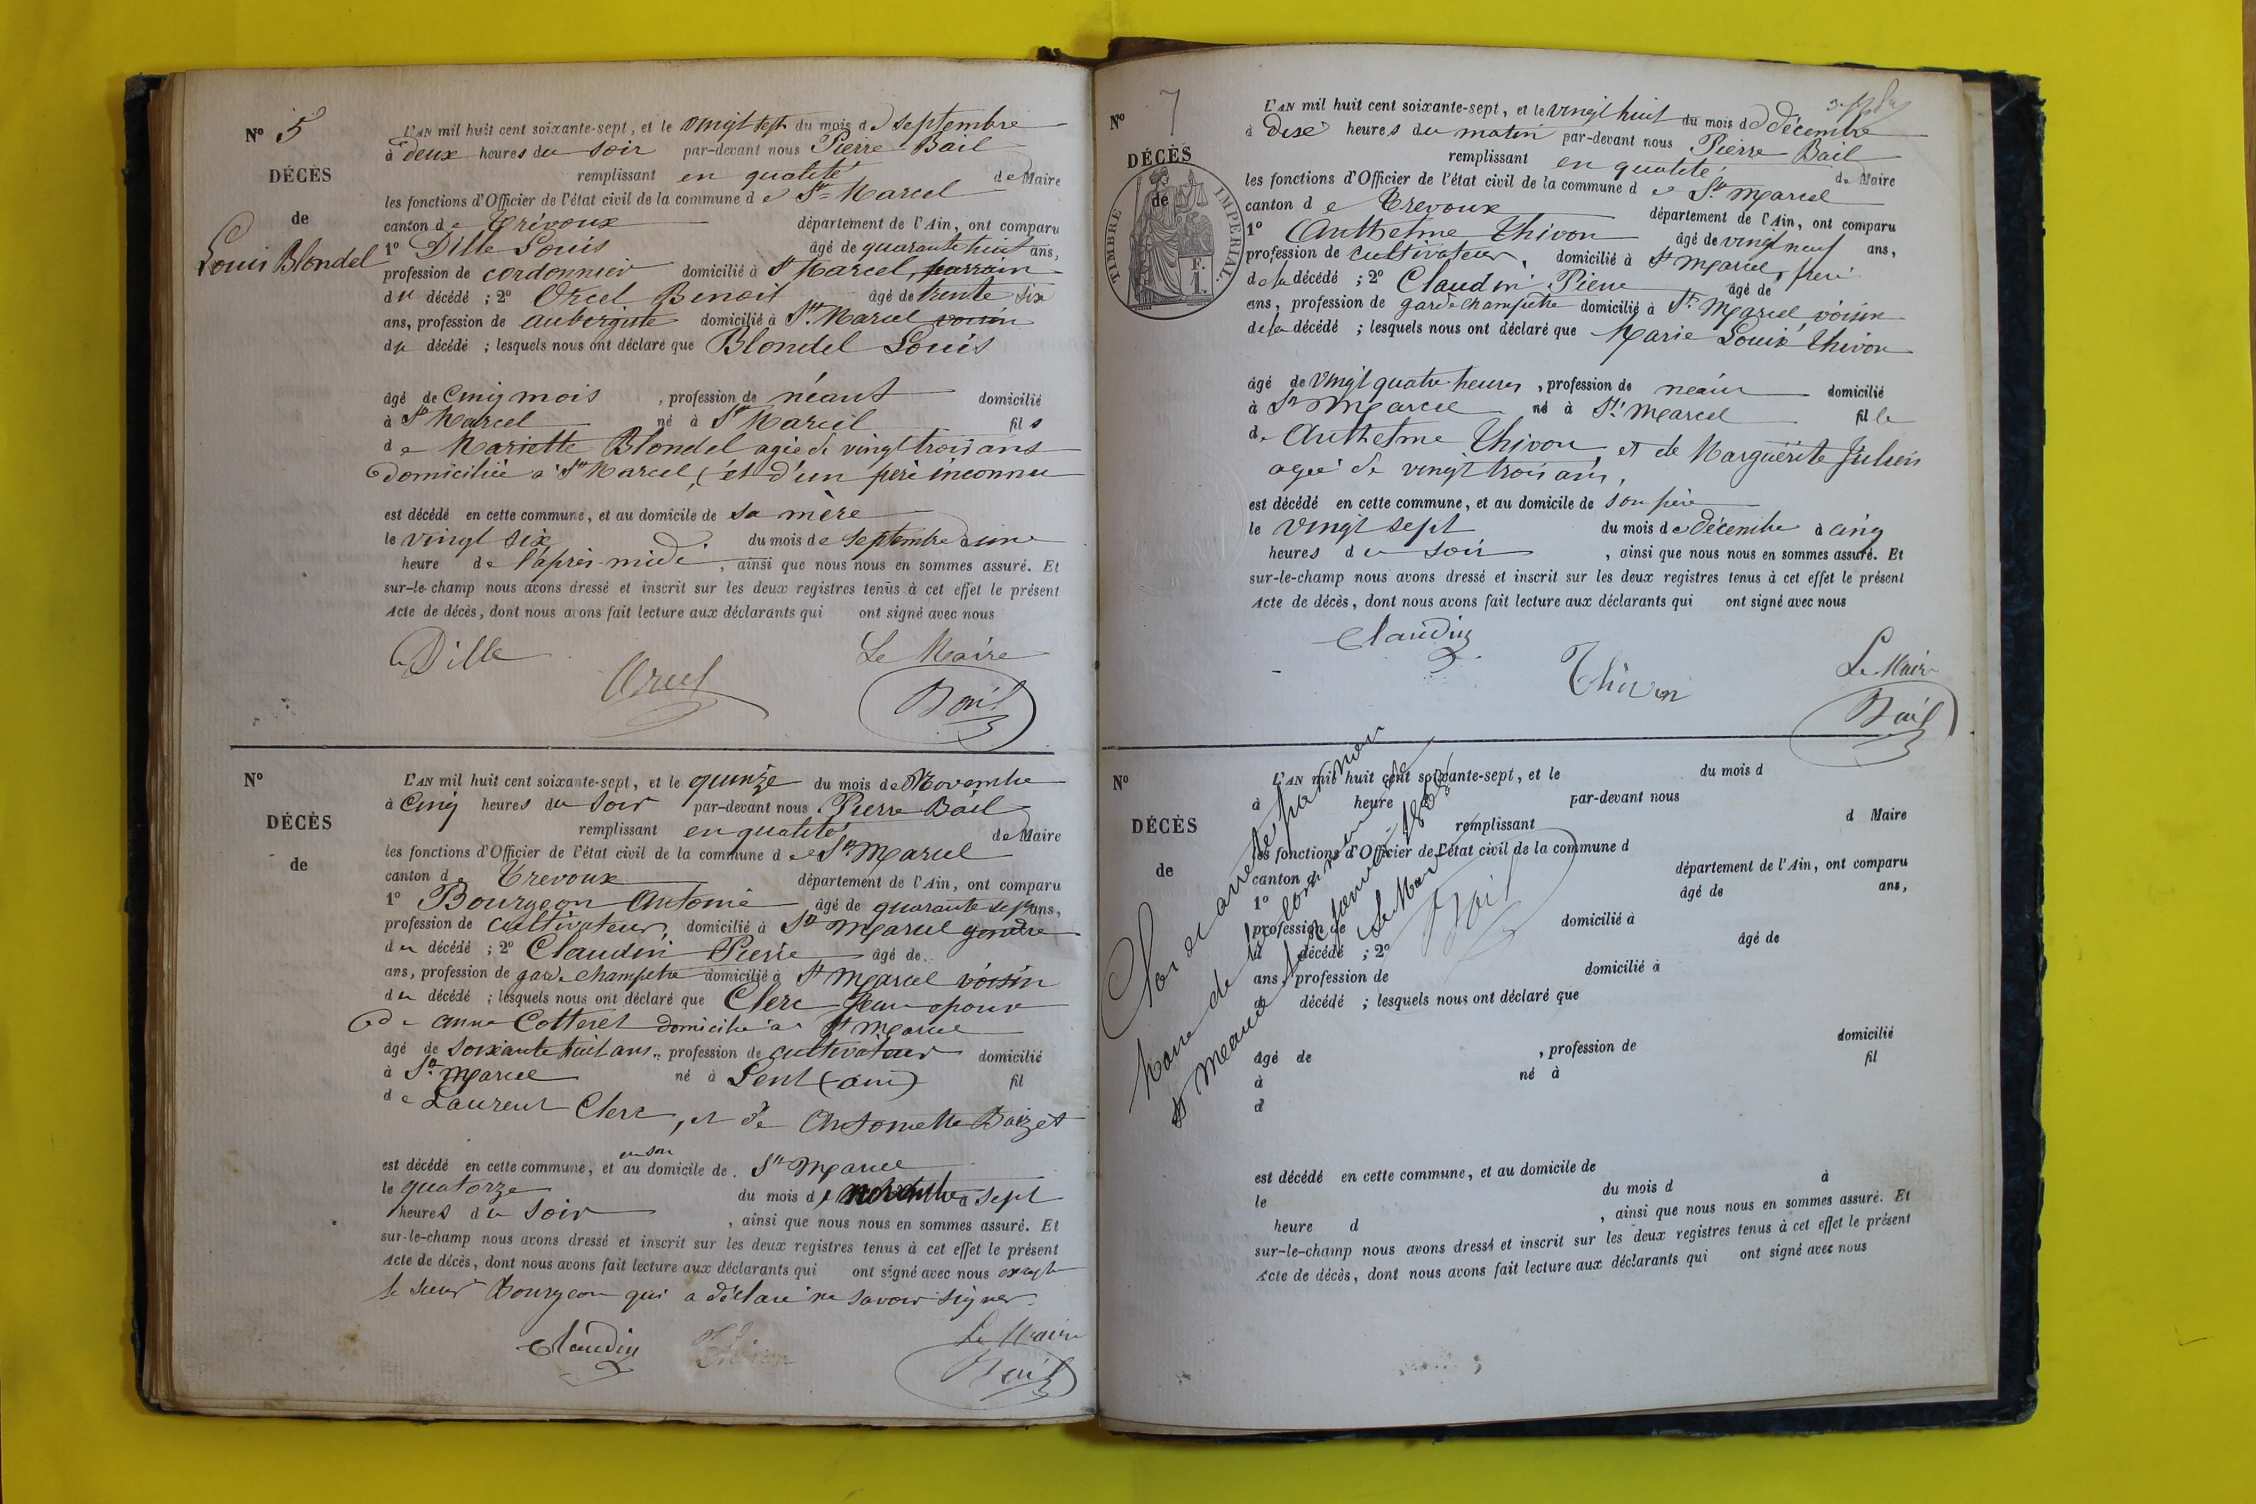 N° 5
DÉCÈS
de
Louis Blondel
L'AN mil huit cent soixante-sept, et le vingt sept du mois de septembre
à deux heures du soir par-devant nous Pierre Bail
remplissant en qualité de Maire
les fonctions d'Officier de l'état civil de la commune de St Marcel
canton de Trévoux département de l'Ain, ont comparu
1° Dille Louis âgé de quarante huit ans,
profession de cordonnier domicilié à St Marcel, parrain
du décédé ; 2° Orcel Benoit âgé de trente six
ans, profession de aubergiste domicilié à St Marcel voisin
du décédé ; lesquels nous ont déclaré que Blondel Louis
âgé de cinq mois , profession de néant domicilié
à St Marcel né à St Marcel fils
de Mariette Blondel agée de vingt trois ans
domiciliée à St Marcel, et d'un père inconnu
est décédé en cette commune, et au domicile de sa mère
le vingt six du mois de septembre à une
heure de l'après midi , ainsi que nous nous en sommes assuré. Et
sur-le-champ nous avons dressé et inscrit sur les deux registres tenus à cet effet le présent
Acte de décès, dont nous avons fait lecture aux déclarants qui ont signé avec nous
Dille Orcel Le Maire
Bail
N°
DÉCÈS
de
L'AN mil huit cent soixante-sept, et le quinze du mois de Novembre
à cinq heures du soir par-devant nous Pierre Bail
remplissant en qualité de Maire
les fonctions d'Officier de l'état civil de la commune de St Marcel
canton de Trevoux département de l'Ain, ont comparu
1° Bourgeon Antoine âgé de quarante sept ans,
profession de cultivateur, domicilié à St Marcel gendre
du décédé ; 2° Claudin Pierre âgé de
ans, profession de garde champetre domicilié à St Marcel voisin
du décédé ; lesquels nous ont déclaré que Clerc Jean epoux
de anne Cotteret domicilié à St Marcel
âgé de soixante huit ans , profession de cultivateur domicilié
à St Marcel né à Lent (ain) fil
de Laurent Clerc, et de Antoinette Baizet
en son
est décédé en cette commune, et au domicile de St Marcel
le quatorze du mois de novembre à sept
heures du soir , ainsi que nous nous en sommes assuré. Et
sur-le-champ nous avons dressé et inscrit sur les deux registres tenus à cet effet le présent
Acte de décès, dont nous avons fait lecture aux déclarants qui ont signé avec nous excepté
le sieur Bourgeon qui a déclaré ne savoir signer.
Claudin Thivon Le Maire
Bail
N° 7
DÉCÈS
de
TIMBRE IMPERIAL
F.
1.
L'AN mil huit cent soixante-sept, et le vingt huit du mois de décembre
à dixe heures du matin par-devant nous Pierre Bail
remplissant en qualité de Maire
les fonctions d'Officier de l'état civil de la commune de St Marcel
canton de Trevoux département de l'Ain, ont comparu
1° Anthelme Thivon âgé de vingt neuf ans,
profession de cultivateur, domicilié à St Marcel, frere
de la décédé ; 2° Claudin Pierre âgé de
ans, profession de garde champetre domicilié à St Marcel voisin
de la décédé ; lesquels nous ont déclaré que Marie Louise Thivon
âgé de vingt quatre heures , profession de neant domicilié
à St Marcel né à St Marcel fille
de Anthelme Thivon et de Marguerite Julien
agée de vingt trois ans,
est décédé en cette commune, et au domicile de son père
le vingt sept du mois de décembre à cinq
heures du soir , ainsi que nous nous en sommes assuré. Et
sur-le-champ nous avons dressé et inscrit sur les deux registres tenus à cet effet le présent
Acte de décès, dont nous avons fait lecture aux déclarants qui ont signé avec nous
Claudin Thivon Le Maire
Bail
N°
DÉCÈS
de
L'AN mil huit cent soixante-sept, et le du mois d
à heure par-devant nous
remplissant d Maire
les fonctions d'Officier de l'état civil de la commune d
canton d département de l'Ain, ont comparu
1° âgé de ans,
profession de domicilié à
d décédé ; 2° âgé de
ans, profession de domicilié à
d décédé ; lesquels nous ont déclaré que
âgé de , profession de domicilié
à né à fil
d
est décédé en cette commune, et au domicile de
le du mois d à
heure d , ainsi que nous nous en sommes assuré. Et
sur-le-champ nous avons dressé et inscrit sur les deux registres tenus à cet effet le présent
Acte de décès, dont nous avons fait lecture aux déclarants qui ont signé avec nous
Clos et arreté par nous
Maire de la commune de
St Marcel le janvier 1868
Le Maire
Bail